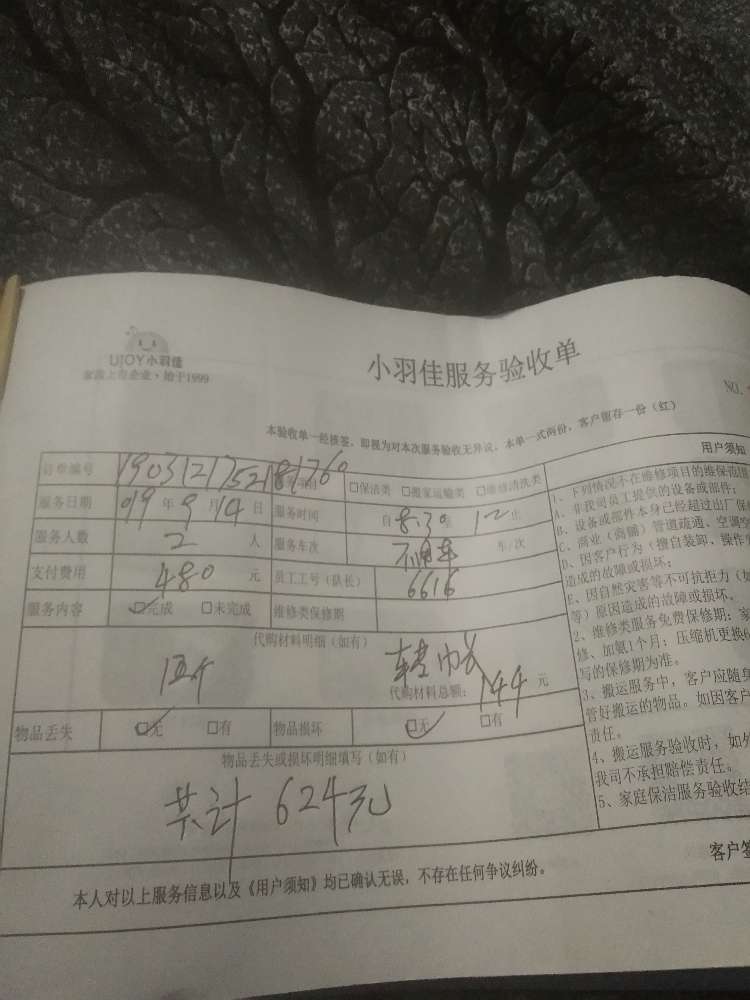 UJOY小羽佳
家族上市企业·始于1999
小羽佳服务验收单
NO.
本验收单一经核签,即视为对本次服务验收无异议。本单一式两份,客户留存一份(红)
订单编号 服务项目 □保洁类 □搬家运输类 □维修清洗类
服务日期 019年9月14日 服务时间 自8:30至12止
服务人数 2人 服务车次 车/次
支付费用 480元 员工工号(队长) 6616
服务内容 □完成 □未完成 维修类保修期
代购材料明细(如有)
代购材料总额:144元
物品丢失 □无 □有 物品损坏 □无 □有
物品丢失或损坏明细填写(如有)
共计 624元
本人对以上服务信息以及《用户须知》均已确认无误,不存在任何争议纠纷。
用户须知
1、下列情况不在维修项目的维保范围
A、非我司员工提供的设备或部件;
B、设备或部件本身已经超过出厂保
C、商业(商铺)管道疏通、空调空
D、因客户行为(擅自装卸、操作
造成的故障或损坏;
E、因自然灾害等不可抗拒力(如
等)原因造成的故障或损坏。
2、维修类服务免费保修期:家
修、加氨1个月;压缩机更换6
写的保修期为准。
3、搬运服务中,客户应随身
管好搬运的物品。如因客户
责任。
4、搬运服务验收时,如外
我司不承担赔偿责任。
5、家庭保洁服务验收结
客户签